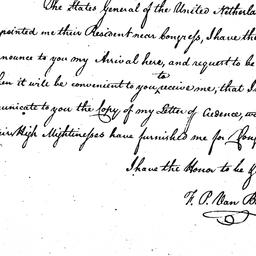 The States General of the United Netherla
pointed me their Resident near Congress, I have th
nnounce to you my Arrival here, and request to be
to
hen it will be convenient to you receive me, that I
unicate to you the Copy of my Letter of Credence, w
eir High Mightinesses have furnished me for Cong
I have the Honor to be &
F. P. Van B